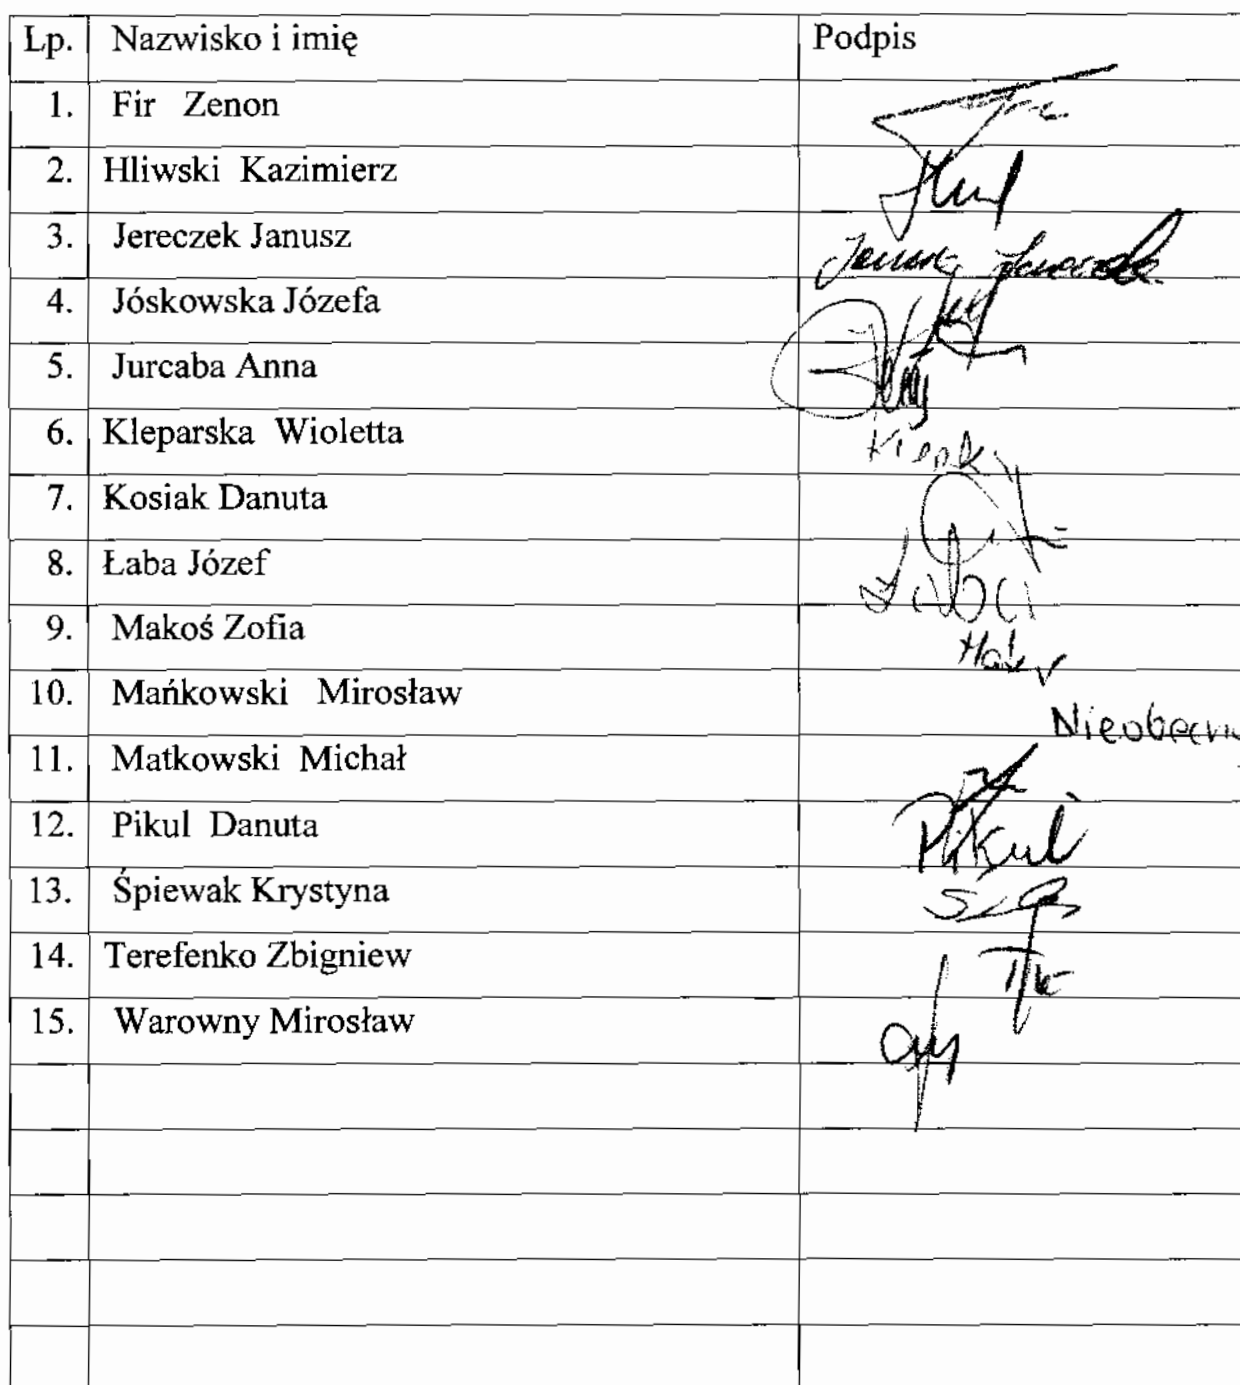 Lp. Nazwisko i imię Podpis
1. Fir Zenon
2. Hliwski Kazimierz
3. Jereczek Janusz
4. Jóskowska Józefa
5. Jurcaba Anna
6. Kleparska Wioletta
7. Kosiak Danuta
8. Łaba Józef
9. Makoś Zofia
10. Mańkowski Mirosław Nieobecny
11. Matkowski Michał
12. Pikul Danuta Pikul
13. Śpiewak Krystyna
14. Terefenko Zbigniew
15. Warowny Mirosław